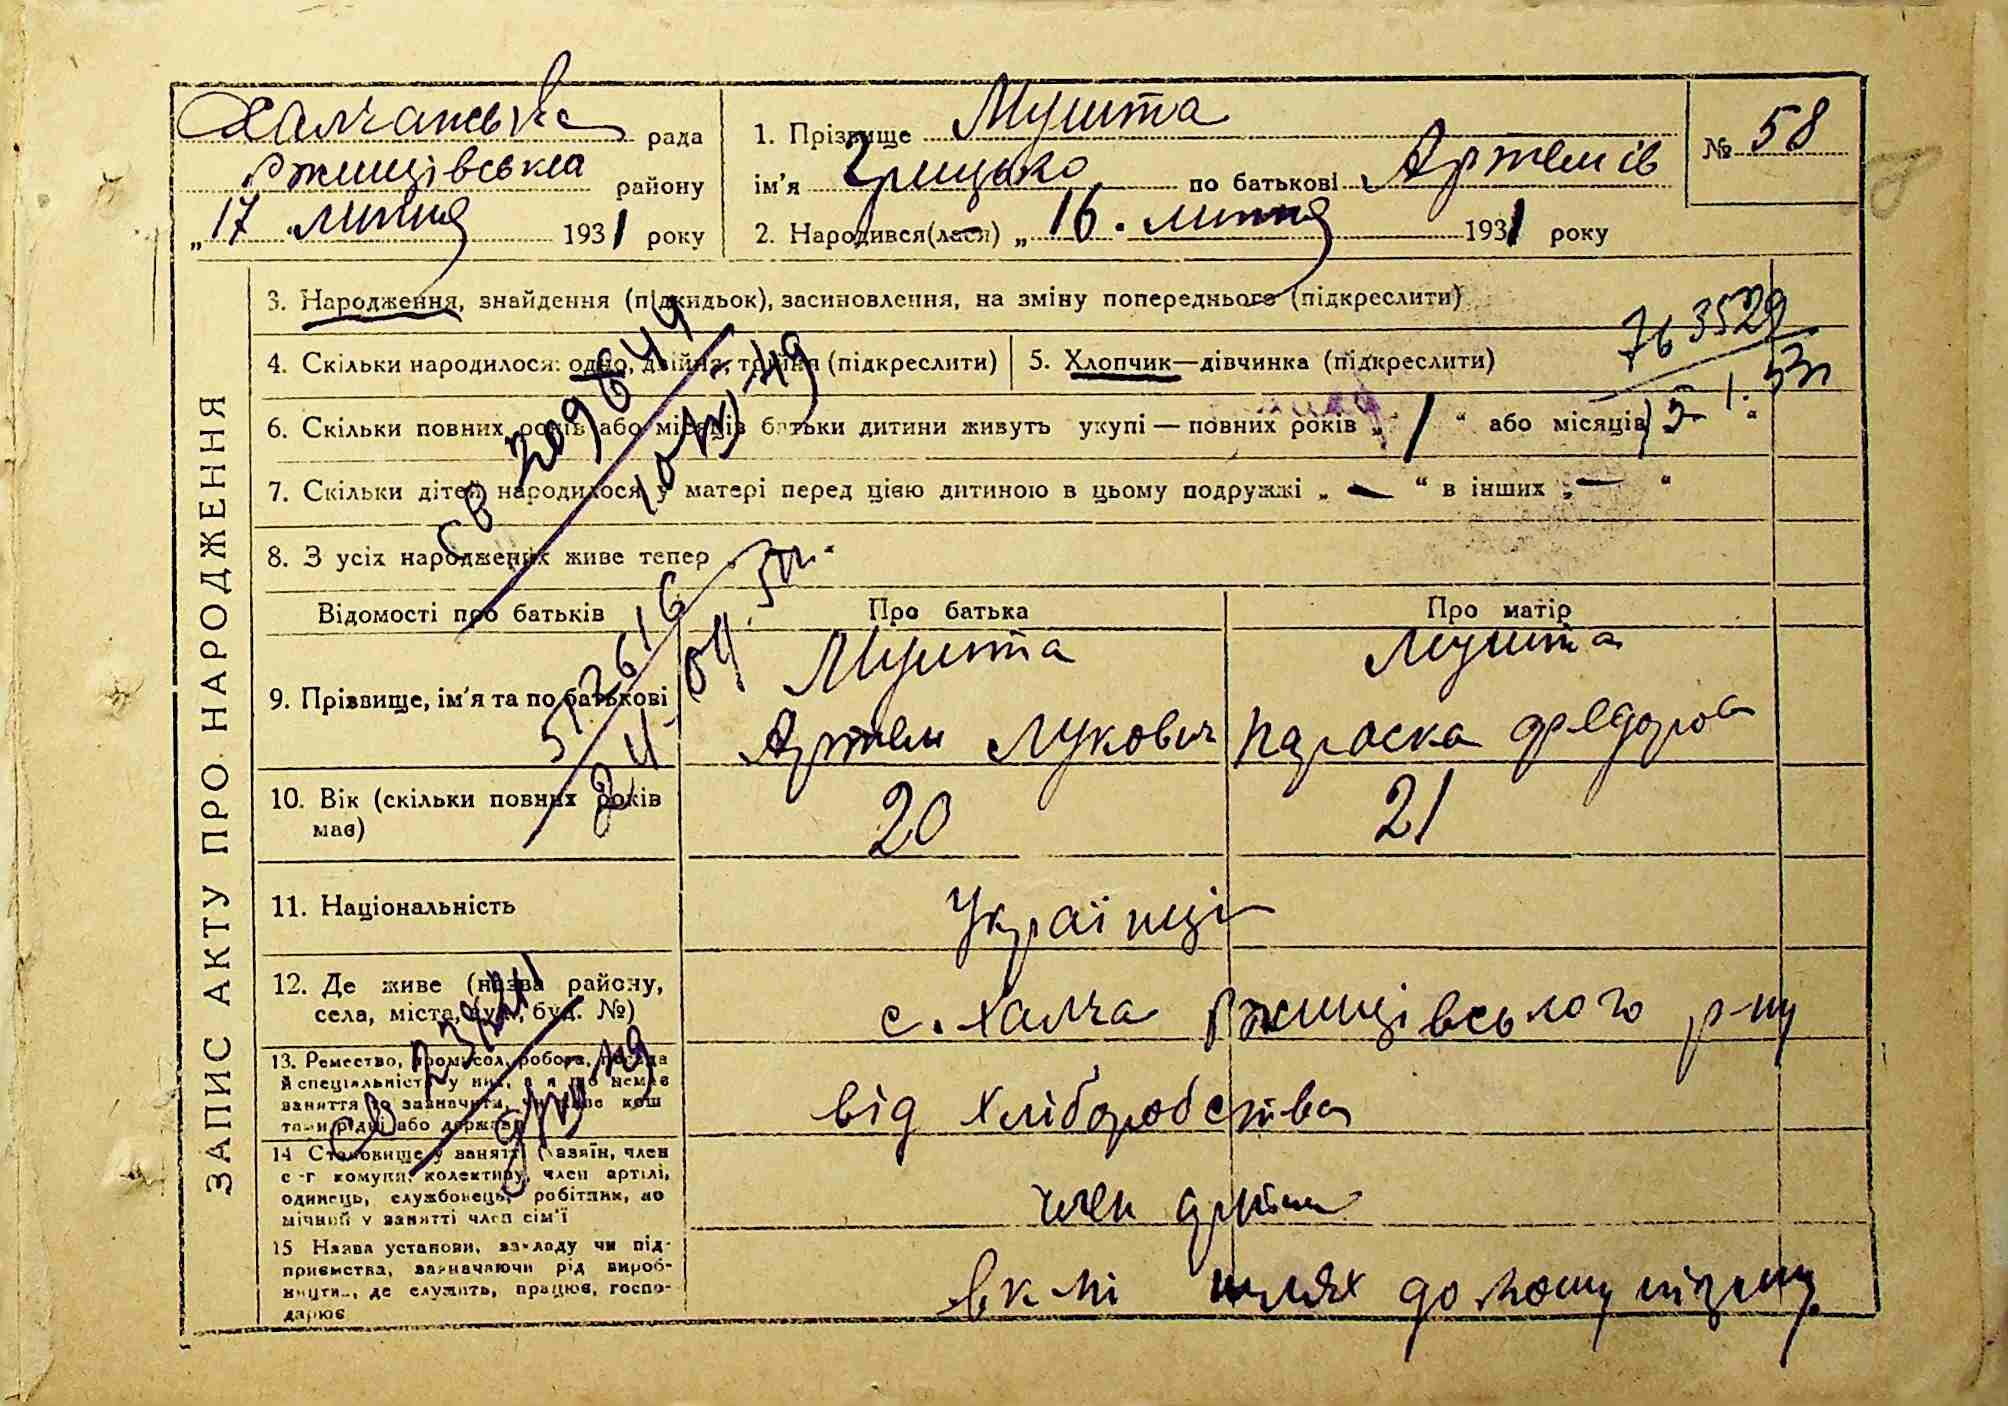 Халчанська рада
Ржищівська району
„17" липня 1931 року
1. Прізвище Мушта
ім'я Грицько по батькові Артемів
2. Народився(лася) „16. липня 1931 року
№ 58
ЗАПИС АКТУ ПРО НАРОДЖЕННЯ
3. Народження, знайдення (підкидьок), засиновлення, на зміну попереднього (підкреслити)
4. Скільки народилося: одно, двійня, тройня (підкреслити)
5. Хлопчик—дівчинка (підкреслити)
763529
6. Скільки повних років або місяців батьки дитини живуть укупі — повних років „1" або місяців
7. Скільки дітей народилося у матері перед цією дитиною в цьому подружжі „—" в інших „—"
8. З усіх народжених живе тепер
Відомості про батьків
Про батька
Про матір
9. Прізвище, ім'я та по батькові
Мушта
Артем Лукович
Мушта
Параска Федоров
10. Вік (скільки повних років
має)
20
21
11. Національність
Українці
12. Де живе (назва району,
села, міста, вул., буд. №)
с. Халча Ржищівського р-ну
13. Ремество, промисол, робота, посада
й спеціяльність у них, а як що немає
заняття то зазначити, чи живе кош
тами рідні або держави
від хліборобства
14 Становище у занятті (хазяїн, член
с-г комуни, колективу, член артілі,
одинець, службовець, робітник, по
мічний у занятті член сім'ї
член артілі
15 Назва установи, закладу чи під-
приємства, зазначаючи рід вироб-
ництва, де служить, працює, госпо-
дарює
шлях до комунізму